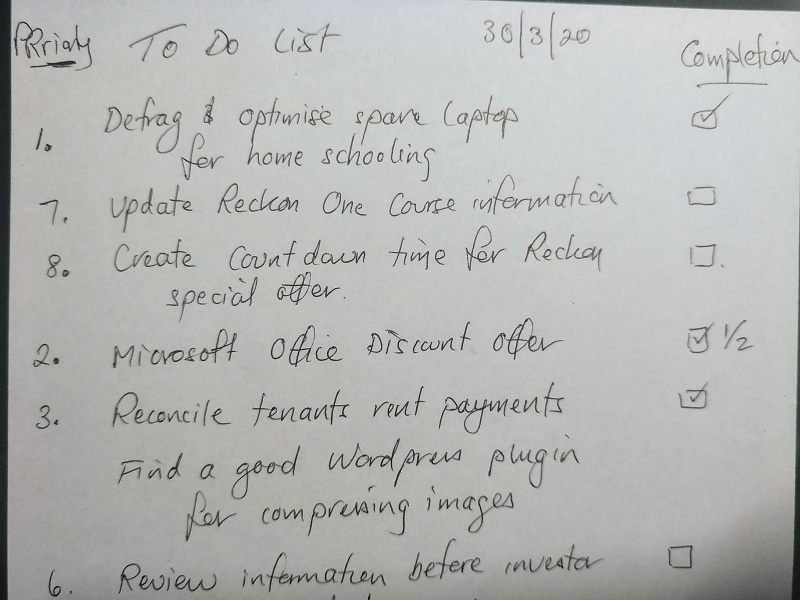 PRriaty To Do List 30/3/20 Completion
1. Defrag & optimise spare laptop ☑
for home schooling
7. Update Reckon One Course information ☐
8. Create Countdown time for Reckon ☐.
special offer.
2. Microsoft Office Discount offer ☑ 1/2
3. Reconcile tenants rent payments ☑
Find a good Wordpress plugin
for compressing images
6. Review information before investor ☐